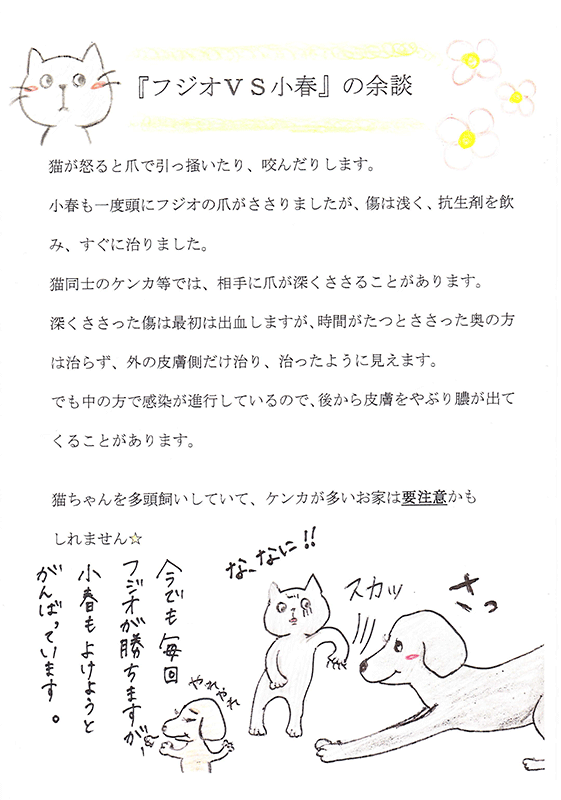 『フジオＶＳ小春』の余談
猫が怒ると爪で引っ掻いたり、咬んだりします。
小春も一度頭にフジオの爪がささりましたが、傷は浅く、抗生剤を飲
み、すぐに治りました。
猫同士のケンカ等では、相手に爪が深くささることがあります。
深くささった傷は最初は出血しますが、時間がたつとささった奥の方
は治らず、外の皮膚側だけ治り、治ったように見えます。
でも中の方で感染が進行しているので、後から皮膚をやぶり膿が出て
くることがあります。
猫ちゃんを多頭飼いしていて、ケンカが多いお家は要注意かも
しれません☆
な、なに!!
スカッ
さっ
今でも毎回
フジオが勝ちますが、
小春もよけようと
がんばっています。
やれやれ